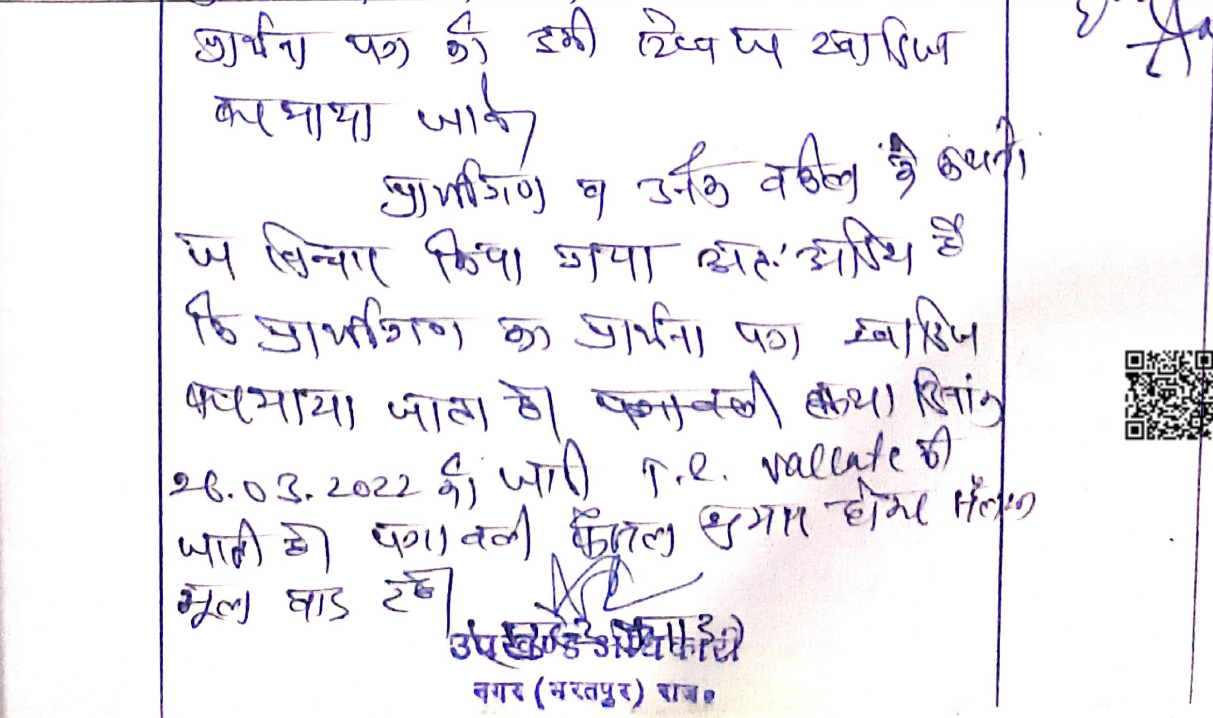 प्रार्थना पत्र को इसी स्टेज पर खारिज
फरमाया जावे।
प्रार्थीगण व उनके वकील के कथनो
पर विचार किया गया अतः आदेश है
कि प्रार्थीगण का प्रार्थना पत्र खारिज
फरमाया जाता है। पत्रावली दिनांक
26.03.2022 को जारी T.I. vaccate की
जाती है। पत्रावली फैसल शुमार होकर संलग्न
मूल वाद रहे।
उपखण्ड अधिकारी
नगर (भरतपुर) राज०